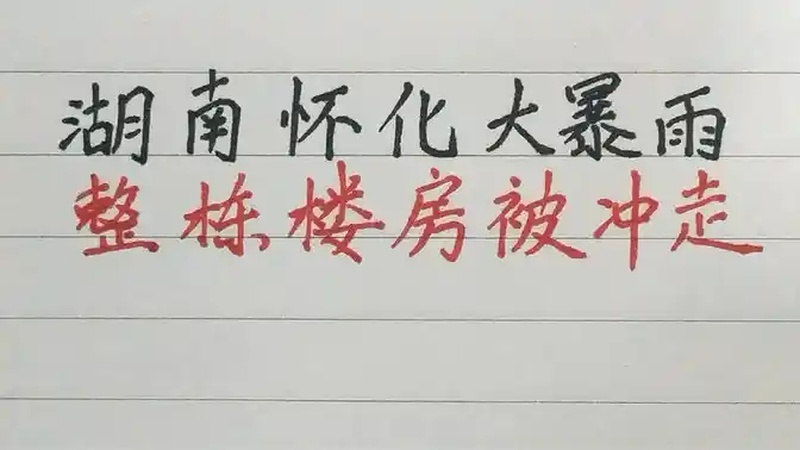 湖南怀化大暴雨
整栋楼房被冲走